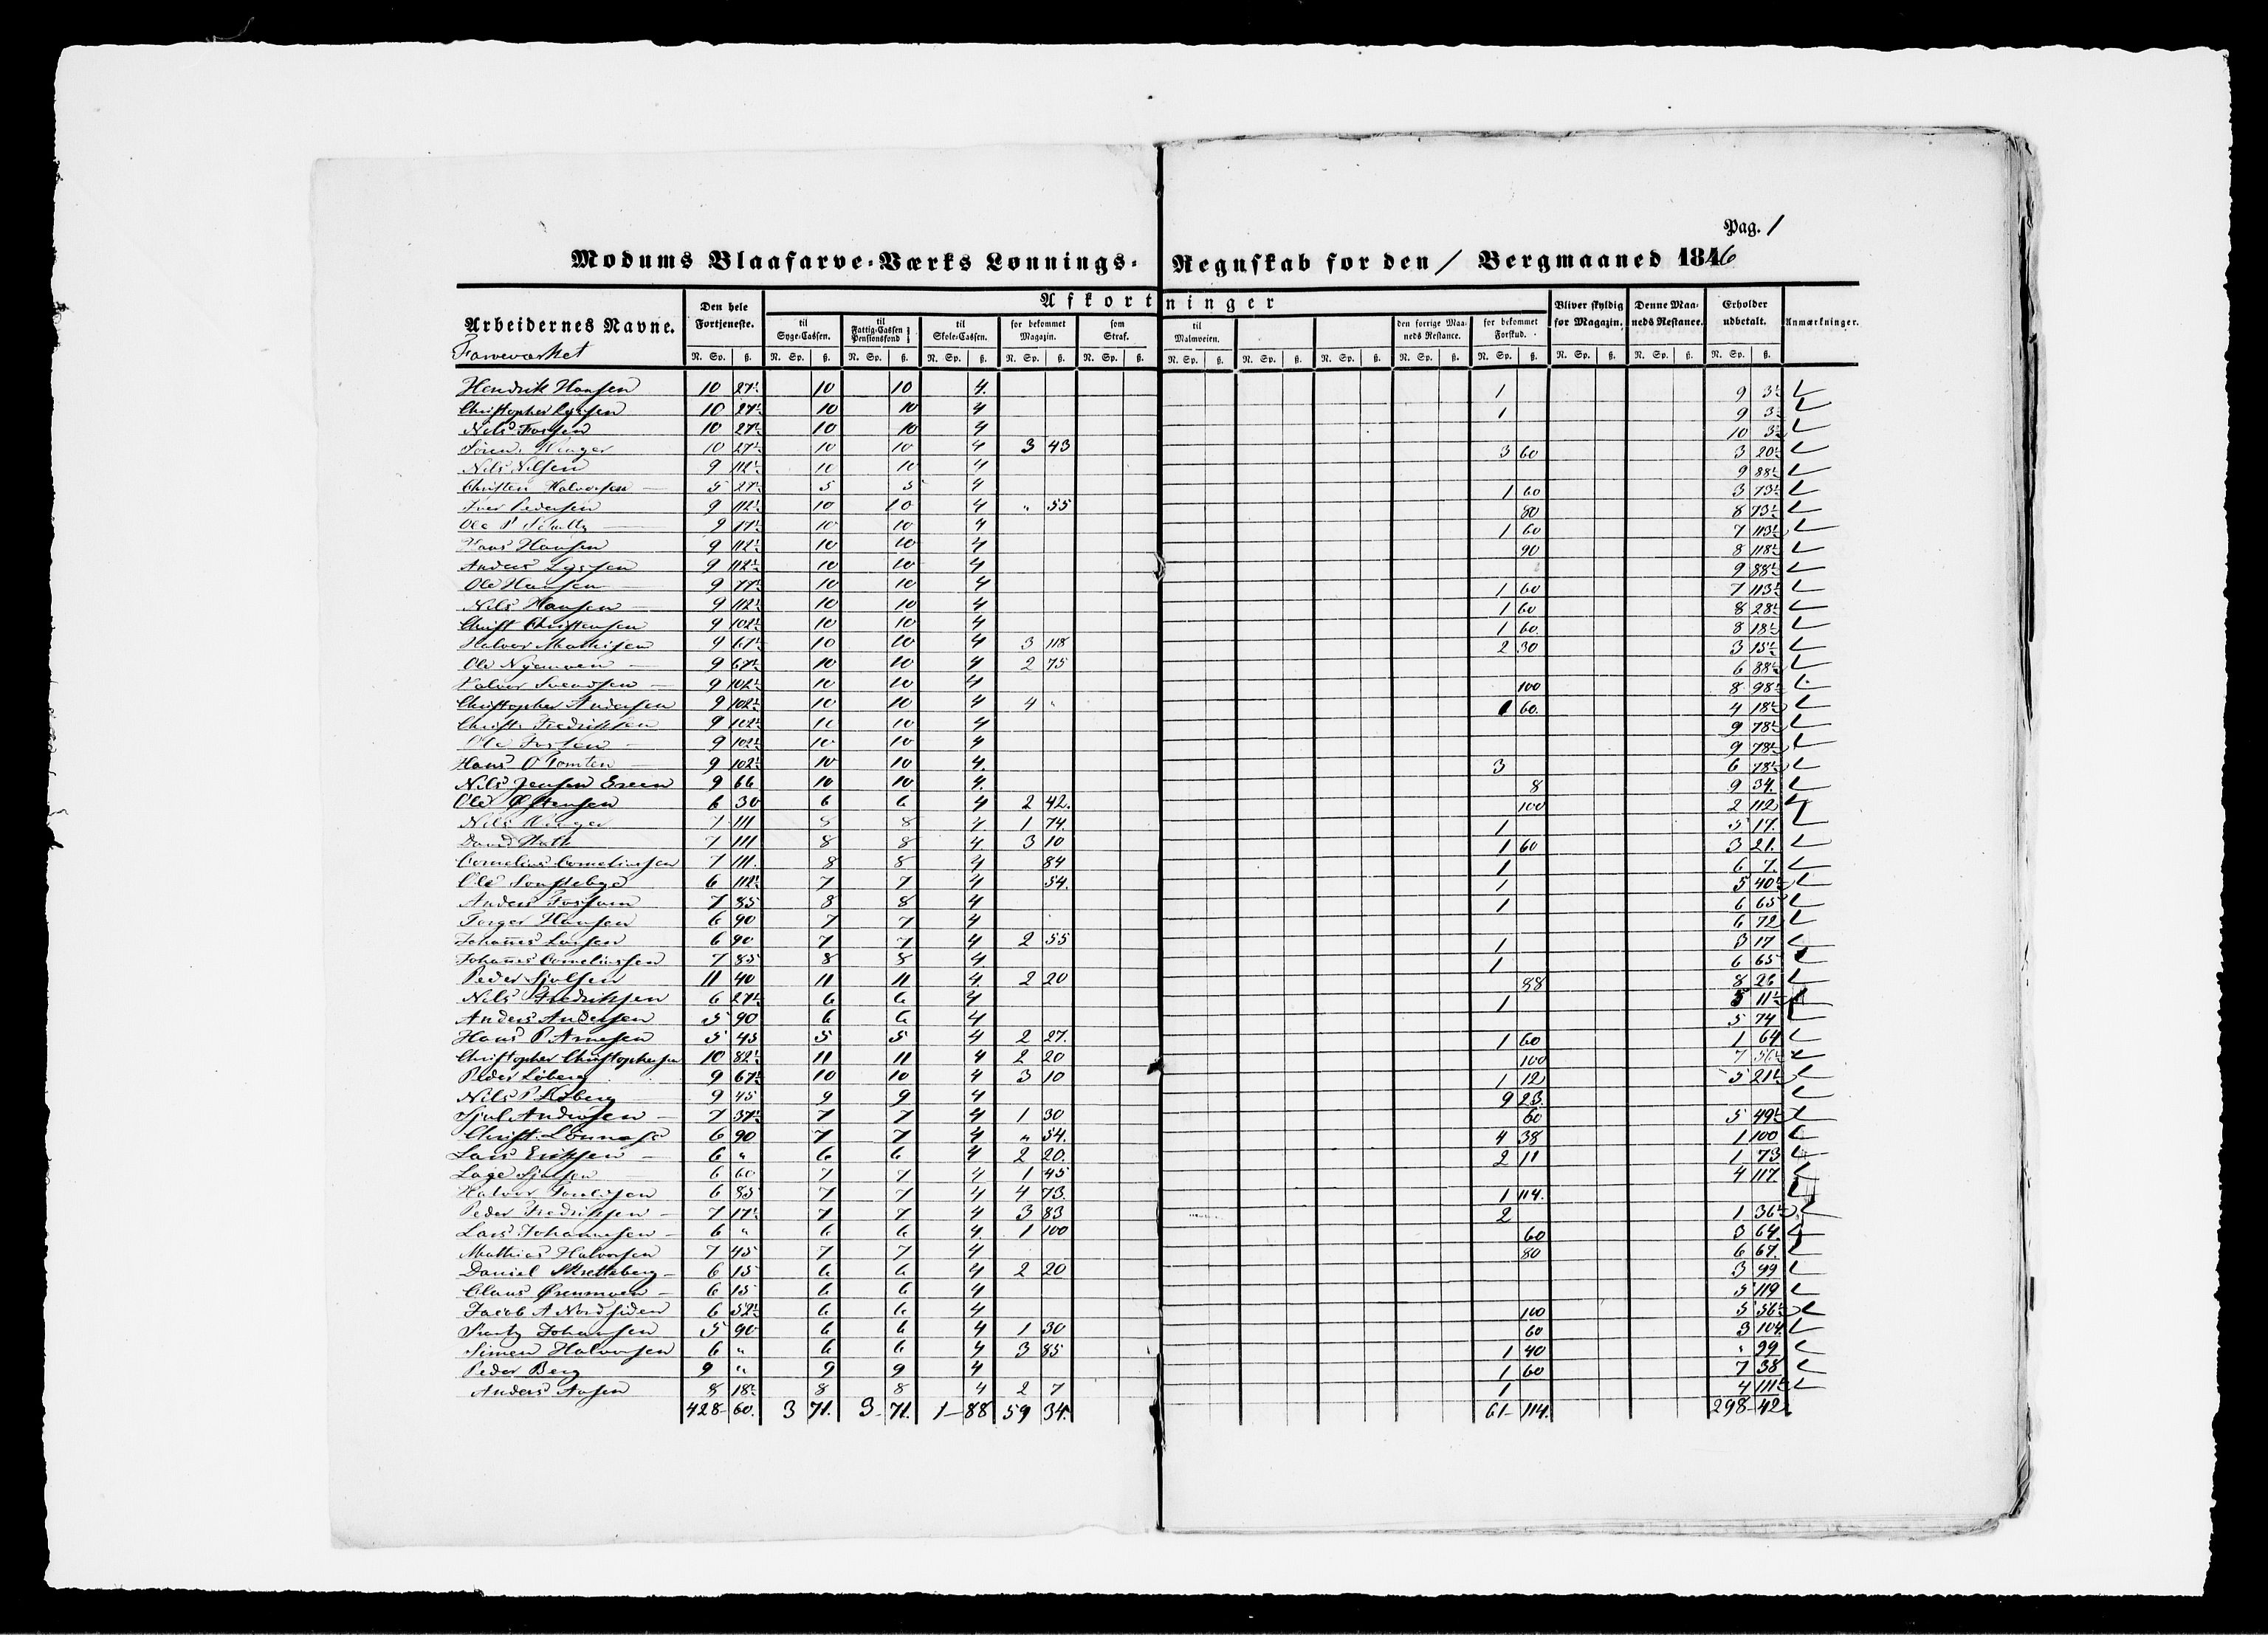 Pag. 1
Modums Blaafarve-Værks Lønnings- Regnskab for den 1 Bergmaaned 1846
Arbeidernes Navne. Den hele Fortjeneste. Afkortninger Bliver skyldig for Magazin. Denne Maaneds Restance. Erholder udbetalt. Anmærkninger.
til Syge-Cassen. til Fattig-Cassen Pensionsfond til Skole-Cassen. for bekommet Magazin. som Straf. til Malmveien. den forrige Maaneds Restance. for bekommet Forskud.
Farveværket
N. Sp. ß. N. Sp. ß. N. Sp. ß. N. Sp. ß. N. Sp. ß. N. Sp. ß. N. Sp. ß. N. Sp. ß. N. Sp. ß. N. Sp. ß. N. Sp. ß. N. Sp. ß. N. Sp. ß. N. Sp. ß.
Hendrik Hansen 10 27½ 10 10 4 1 9 3½
Christopher 10 27½ 10 10 4 1 9 3½
Nils Fossen 10 27½ 10 10 4 10 3½
Søren 10 27½ 10 10 4 3 43 3 60 3 20½
Nils Nilsen 9 112½ 10 10 4 9 88½
Christen Halvorsen 5 27½ 5 5 4 1 60 3 73½
Iver Pedersen 9 112½ 10 10 4 " 55 80 8 73½
Ole P 9 17½ 10 10 4 1 60 7 113½
Hans Hansen 9 112½ 10 10 4 90 8 118½
Anders 9 112½ 10 10 4 9 88½
Ole Hansen 9 77½ 10 10 4 1 60 7 113½
Nils Hansen 9 112½ 10 10 4 1 60 8 28½
Christ Christensen 9 102½ 10 10 4 1 60 8 18½
Halvor Mathisen 9 67½ 10 10 4 3 118 2 30 3 15½
Ole Nyemoen 9 67½ 10 10 4 2 75 6 88½
Halvor Svendsen 9 102½ 10 10 4 100 8 98½
Christopher Andersen 9 102½ 10 10 4 4 " 1 60 4 18½
Christ: Fredriksen 9 102½ 10 10 4 9 78½
Ole Fossen 9 102½ 10 10 4 9 78½
Hans O Tomten 9 102½ 10 10 4 3 6 78½
Nils Jensen 9 66 10 10 4 8 9 34
Ole Østensen 6 30 6 6 4 2 42 100 2 112
Nils 7 111 8 8 4 1 74 1 5 17
David 7 111 8 8 4 3 10 1 60 3 21
Cornelius Corneliussen 7 111 8 8 4 84 1 6 7
Ole 6 112½ 7 7 4 54 1 5 40½
Anders Fossum 7 85 8 8 4 1 6 65
Torger Hansen 6 90 7 7 4 6 72
Johannes Larsen 6 90 7 7 4 2 55 1 3 17
Johannes Corneliussen 7 85 8 8 4 1 6 65
Peder Sjulsen 11 40 11 11 4 2 20 88 8 26
Nils Fredriksen 6 27½ 6 6 4 1 5 11½
Anders Andersen 5 90 6 6 4 5 74
Hans P Arnesen 5 45 5 5 4 2 27 1 60 1 64
Christopher Christophersen 10 82½ 11 11 4 2 20 100 7 56½
Peder Løberg 9 67½ 10 10 4 3 10 1 12 5 21½
Nils P Løberg 9 45 9 9 4 9 23
Sjul Andersen 7 37½ 7 7 4 1 30 60 5 49½
Christ: 6 90 7 7 4 " 54 4 38 1 100
Lars Eriksen 6 " 6 6 4 2 20 2 11 1 73
Lage Sjulsen 6 60 7 7 4 1 45 4 117
Halvor 6 85 7 7 4 4 73 1 114
Peder Fredriksen 7 17½ 7 7 4 3 83 2 1 36½
Lars Johannesen 6 " 6 6 4 1 100 60 3 64
Mathias Halvorsen 7 45 7 7 4 80 6 67
Daniel Skretteberg 6 15 6 6 4 2 20 3 99
Claus Ørenmoen 6 15 6 6 4 5 119
Jacob A Nordsiden 6 52½ 6 6 4 100 5 56½
Johansen 5 90 6 6 4 1 30 60 3 104
Simen Halvorsen 6 " 6 6 4 3 85 1 40 " 99
Peder Berg 9 " 9 9 4 1 60 7 38
Anders Aasen 8 18½ 8 8 4 2 7 1 4 111½
428 60 3 71 3 71 1 88 59 34 61 114 298 42